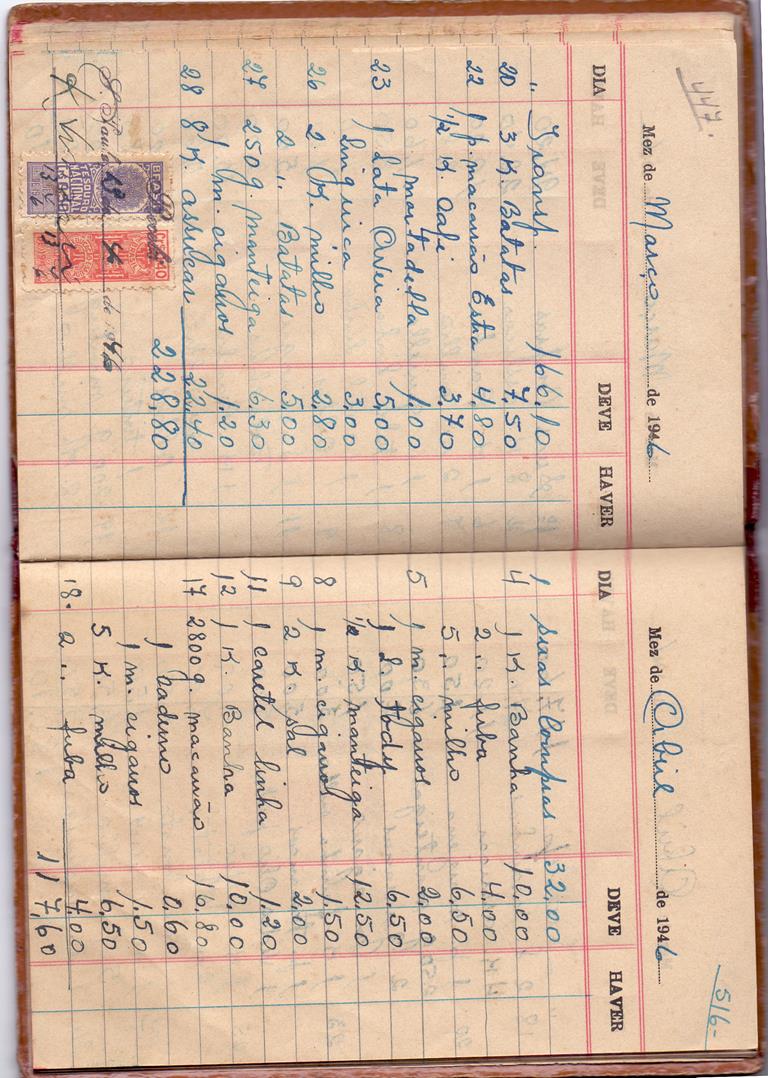 447.
Mez de Março de 1946
DIA DEVE HAVER
" Transp. 166,10
20 3 K. Batatas 7,50
22 1 p. macarrão Estra 4,80
1/2 K. Café 3,70
mortadella 1,00
23 1 Lata Cera 5,00
linguica 3,00
26 2 K. milho 2,80
2 ,, Batatas 5,00
27 250 g. manteiga 6,30
1 m. cigarros 1,20
28 8 K. assucar 22,40
228,80
Recebi
S. Paulo 13 de 4 de 1946
BRASIL
TESOURO NACIONAL
516-
Mez de Abril de 1946
DIA DEVE HAVER
1 suas Compras 32,00
4 1 K. Banha 10,00
2 ,, fuba 4,00
5 ,, milho 6,50
5 1 m. cigarros 2,00
1 Tody 6,50
1/2 K. manteiga 12,50
8 1 m. cigarros 1,50
9 2 K. sal 2,00
11 1 carretel linha 1,20
12 1 K. Banha 10,00
17 2800 g. macarrão 16,80
1 0,60
1 m. cigarros 1,50
5 K. milho 6,50
18. 2 ,, fuba 4,00
117,60